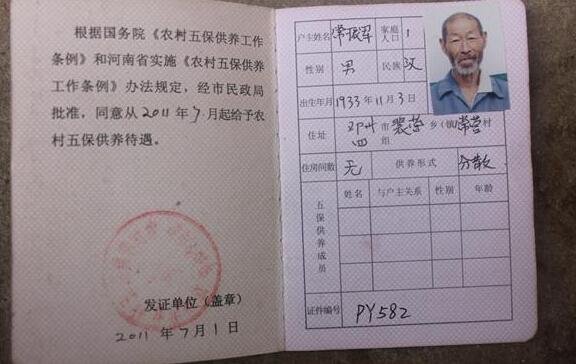 根据国务院《农村五保供养工作
条例》和河南省实施《农村五保供养
工作条例》办法规定，经市民政局
批准，同意从2011年7月起给予农
村五保供养待遇。
发证单位（盖章）
2011年7月1日
户主姓名 常振军 家庭人口 1
性别 男 民族 汉
出生年月 1933年11月3日
住址 邓州市裴营乡（镇）常营村
四组
住房间数 无 供养形式 分散
五保供养成员 姓名 与户主关系 性别 年龄
证件编号 PY582